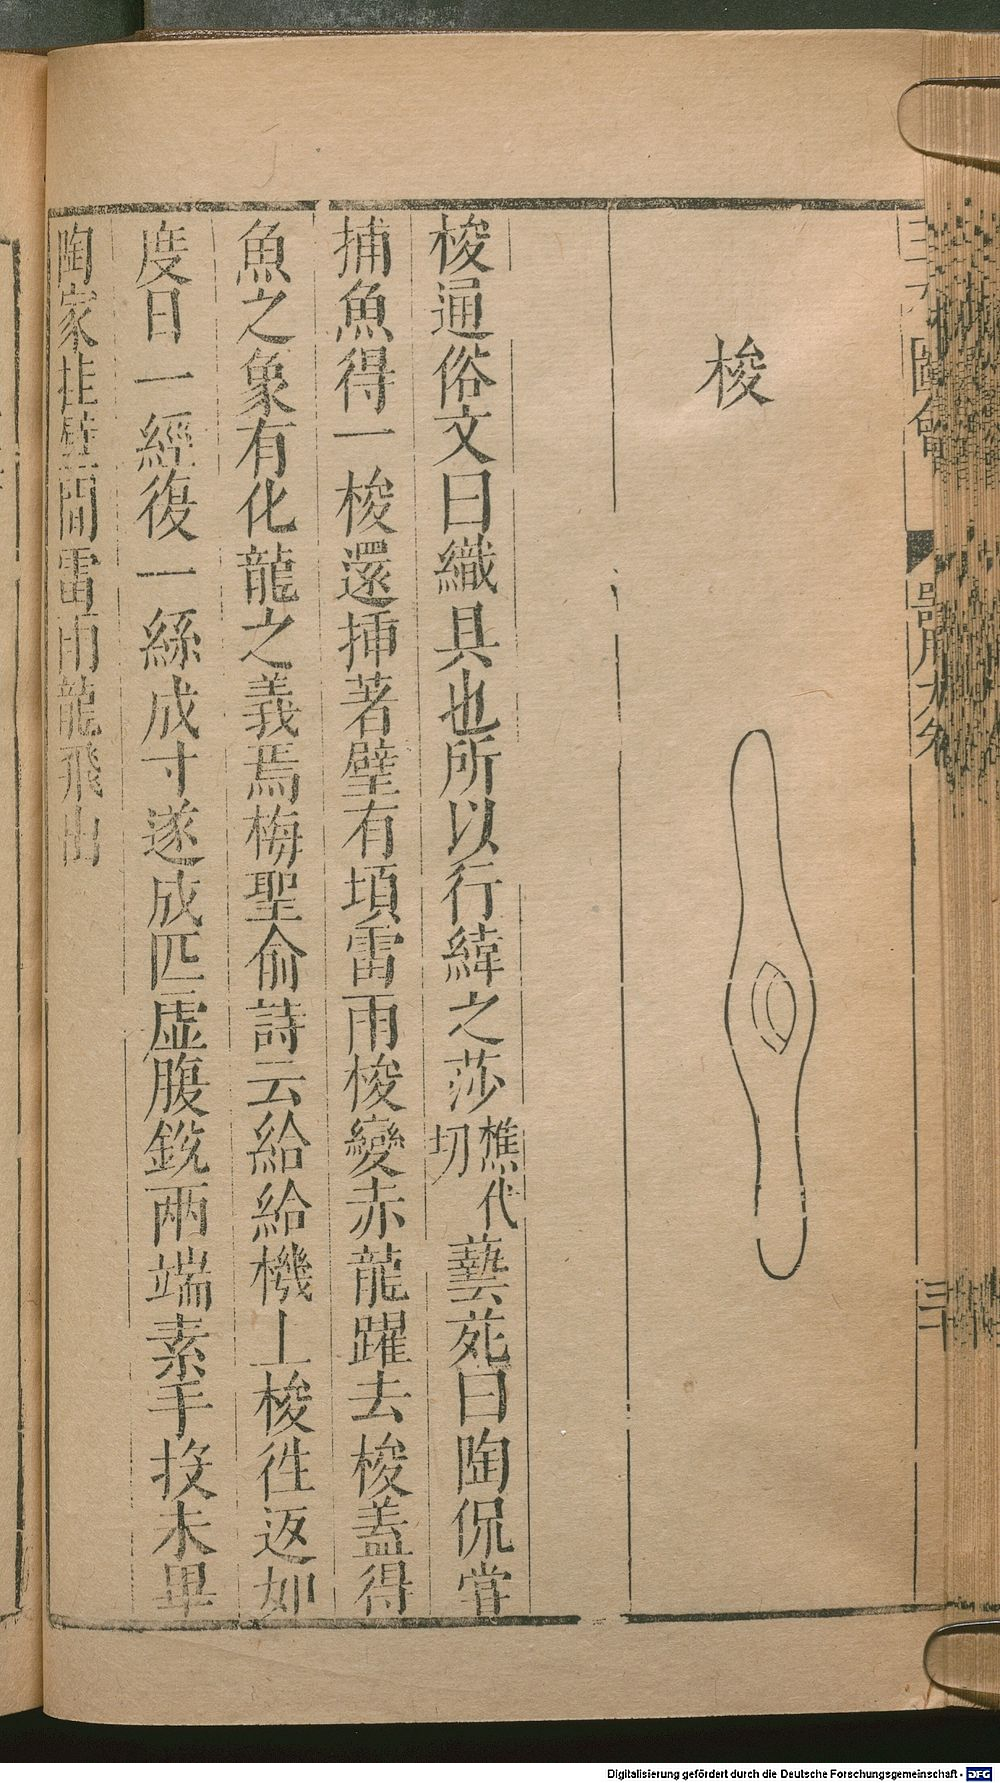 三才圖會
器用九卷
三十
梭
梭通俗文曰織具也所以行緯之莎樵代切藝苑曰陶侃嘗
捕魚得一梭還揷著壁有頃雷雨梭變赤龍躍去梭蓋得
魚之象有化龍之義焉梅聖俞詩云給給機上梭徃返如
度日一經復一絲成寸遂成匹虚腹銳兩端素手投未畢
陶家挂壁間雷雨龍飛出
Digitalisierung gefördert durch die Deutsche Forschungsgemeinschaft - DFG